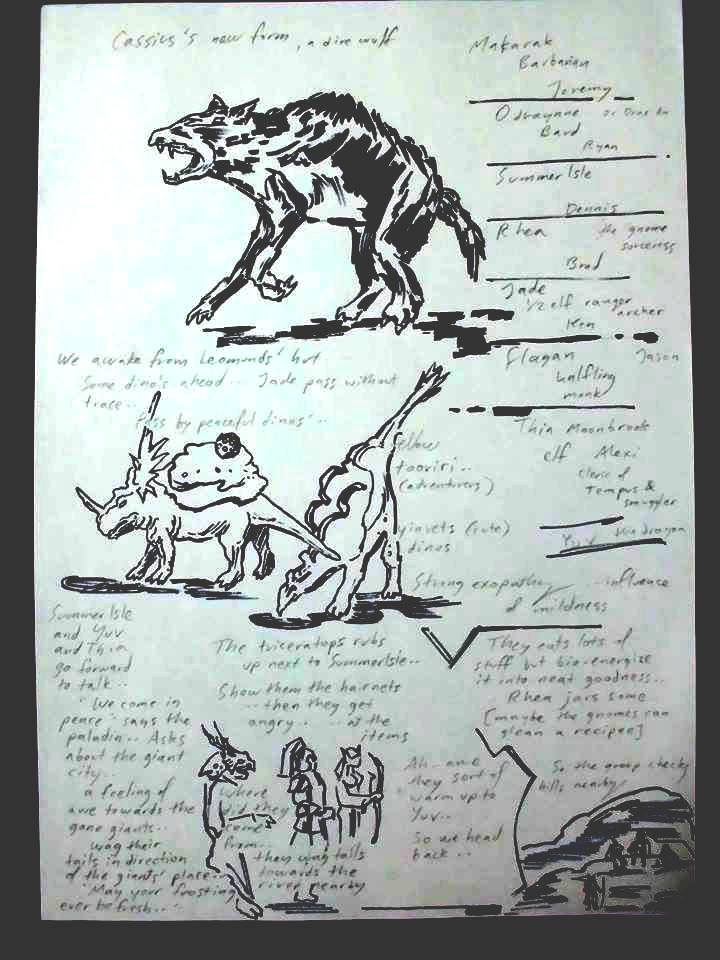 Cassius's new form, a dire wolf
Makarak
Barbarian
Jeremy
Odrayane or
Bard
Ryan
Summer Isle
Dennis
Rhea the gnome
sorceress
Brad
Jade
1/2 elf ranger
archer
Ken
Flagan Jason
halfling
monk
Thia Moonbrook
elf Alexi
cleric of
Tempus &
smuggler
Yuv
We awake from Leomunds' hut
Some dino's ahead... Jade pass without
trace..
Pass by peaceful dinos'..
yellow
tooviri..
(adventurers)
yinvets (cute)
dinos
Strong exopathy ... influence
of mildness
Summer Isle
and Yuv
and Thia
go forward
to talk..
"We come in
peace" says the
paladin.. Asks
about the giant
city..
a feeling of
awe towards the
gone giants..
wag their
tails in direction
of the giants' place..
"May your frosting
ever be fresh.."
The triceratops rubs
up next to SummerIsle..
Show them the hairnets
.. then they get
angry.. at the
items
where
did they
come
from..
they wag tails
towards the
river nearby
They eats lots of
stuff but bio-energize
it into neat goodness..
Rhea jars some
[maybe the gnomes can
glean a recipee]
Ah.. and
they sort of
warm up to
Yuv..
So we head
back..
So the group checks
hills nearby